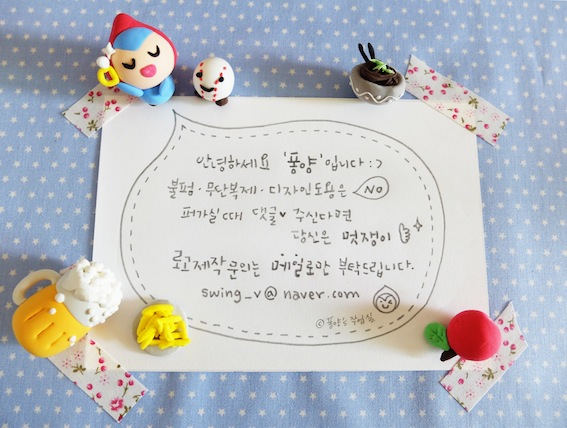 안녕하세요 '퐁양'입니다 :>
불펌·무단복제·디자인도용은 NO
퍼가실 때 댓글♥ 주신다면
당신은 멋쟁이
로고제작문의는 메일로만 부탁드립니다.
swing_v@naver.com
ⓒ퐁양's 작업실